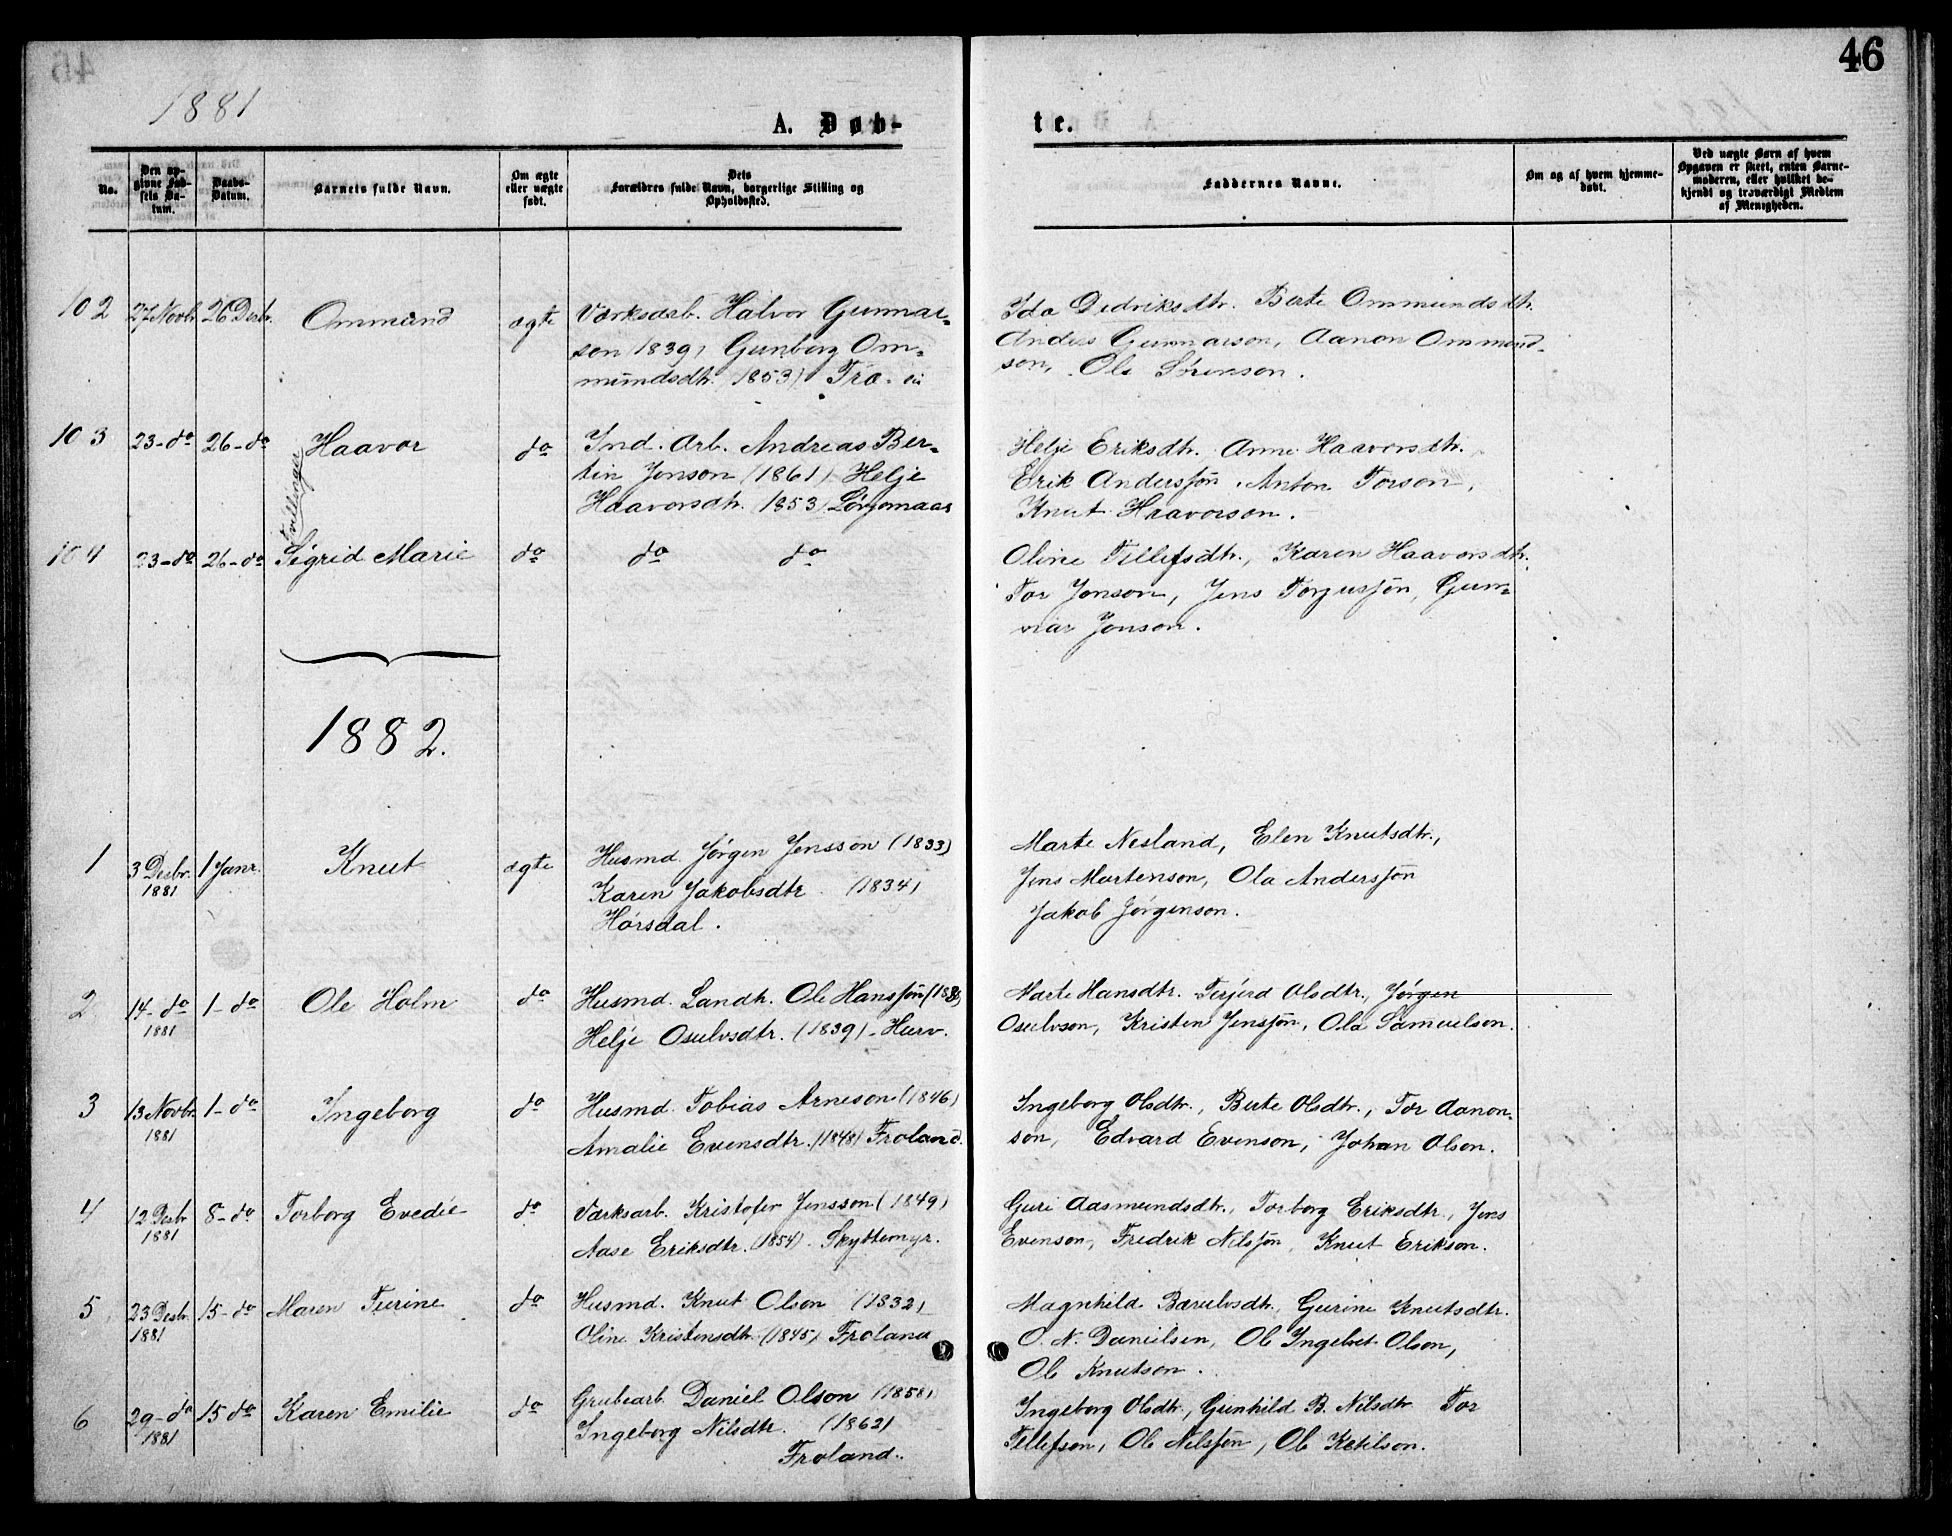 46
1881
A. Døb-
te.
No.
Den opgivne Fødsels Datum.
Daabs-Datum.
Barnets fulde Navn.
Om ægte eller uægte født.
Dets Forældres fulde Navn, borgerlige Stilling og Opholdssted.
Faddernes Navne.
Om og af hvem hjemmedøbt.
Ved uægte Børn af hvem Opgaven er skeet, enten Barnemoderen, eller hvilket bekjendt og troværdigt Medlem af Menigheden.
102 27 Novbr. 26 Desbr. Ommund ægte Værksarb. Halvor Gunnar-
son (1839) Gunborg Om-
mundsdtr. (1853) Fro.
Ida Dedriksdtr. Berte Ommundsdtr.
Anders Gunnarson, Aanon Ommund-
son, Ole Sørenson.
103 23-do 26-do Haavor do Ind. Arb. Andreas Ber-
tin Jonson (1861) Helje
Haavorsdtr. (1853) Løvjomaas
Helje Eriksdtr. Anne Haavorsdtr.
Erik Andersjøn, Anton Torson,
Knut Haavorson.
Tvillinger
104 23-do 26-do Sigrid Marie do do do
Oline Tellefsdtr., Karen Haavorsdtr.
Tor Jonson, Jens Torjusjøn, Gun-
nar Jonson.
1882.
1 3 Desbr. 1881 1 Janr. Knut ægte Husmd. Jørgen Jensson (1833)
Karen Jakobsdtr (1834)
Hørsdal.
Marte Nesland, Elen Knutsdtr.,
Jens Mortenson, Ola Andersjøn
Jakob Jørgenson.
2 14-do 1881 1-do Ole Holm do Husmd. Landh. Ole Hansjøn
Helje Osulvsdtr. (1839) - Hurv.
Marte Hansdtr. Terjerd Olsdtr., Jørgen
Osulvson, Kristen Jensjøn, Ola Samuelson.
3 13 Novbr. 1881 1-do Ingeborg do Husmd. Tobias Arneson (1846)
Amalie Evensdtr. (1848) Froland.
Ingeborg Olsdtr., Berte Olsdtr., Tor Aanon-
son, Edvard Evenson, Johan Olson.
4 12 Desbr 1881 8-do Torborg Evedie do Værksarb. Kristofer Jensson (1849)
Aase Eriksdtr. (1854) - Skyttemyr.
Guri Aasmundsdtr., Torborg Eriksdtr., Jens
Evenson, Fredrik Nilsjøn, Knut Erikson.
5 23 Desbr. 1881 15-do Maren Turine do Husmd. Knut Olson (1832)
Oline Kristensdtr. (1845) Froland
Magnhild Bærulvsdtr. Gurine Knutsdtr.
O. N. Danielsen, Ole Ingebret Olson,
Ole Knutson.
6 29-do 1881 15 do Karen Emilie do Grubearb. Daniel Olson (1858)
Ingeborg Nilsdtr. (1862)
Froland.
Ingeborg Olsdtr., Gunhild B. Nilsdtr Tor
Tellefson, Ole Nilsjøn, Ole Ketilson.